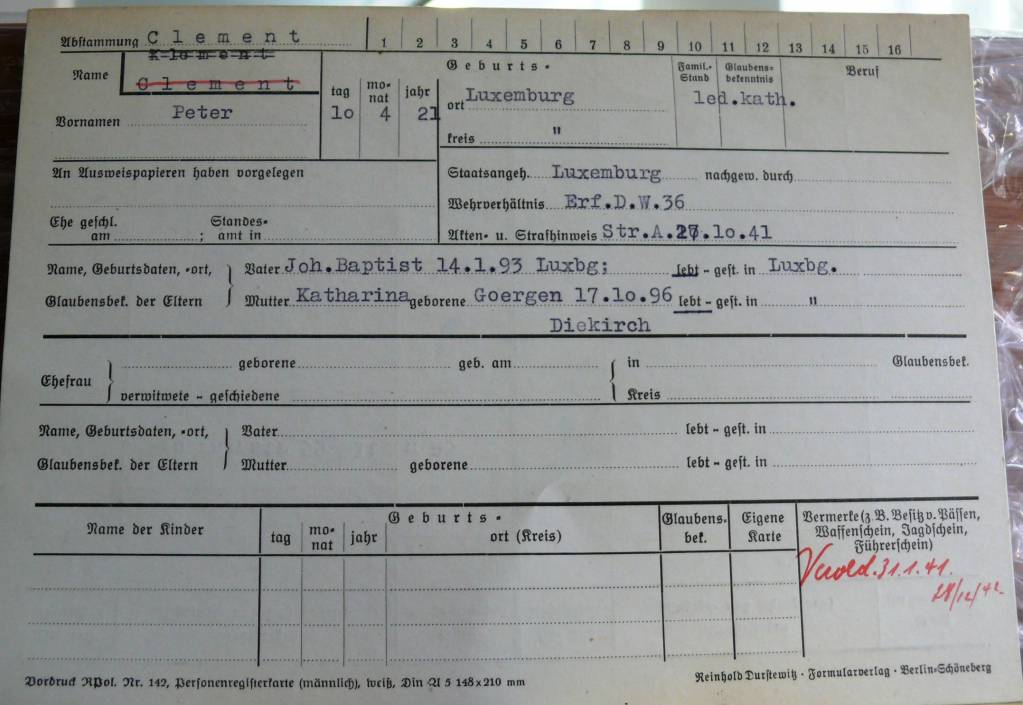 Abstammung C l e m e n t 1 2 3 4 5 6 7 8 9 10 11 12 13 14 15 16
K l e m e n t
Name C l e m e n t
Vornamen Peter
tag mo-nat jahr
lo 4 21
G e b u r t s -
ort Luxemburg
kreis "
Famil.-Stand Glaubens-bekenntnis Beruf
led.kath.
An Ausweispapieren haben vorgelegen
Staatsangeh. Luxemburg nachgew. durch
Wehrverhältnis Erf.D.W.36
Ehe geschl. Standes-
am ; amt in
Akten- u. Strafhinweis Str.A.27.lo.41
Name, Geburtsdaten, -ort, Vater Joh.Baptist 14.1.93 Luxbg; lebt - gest. in Luxbg.
Glaubensbek. der Eltern Mutter Katharina geborene Goergen 17.lo.96 lebt - gest. in "
Diekirch
Ehefrau geborene geb. am in Glaubensbek.
verwitwete - geschiedene Kreis
Name, Geburtsdaten, -ort, Vater lebt - gest. in
Glaubensbek. der Eltern Mutter geborene lebt - gest. in
Name der Kinder G e b u r t s -
tag mo-nat jahr ort (Kreis)
Glaubens-bek. Eigene Karte
Vermerke (z. B. Besitz v. Pässen,
Waffenschein, Jagdschein,
Führerschein)
31.1.41.
28/12/42
Vordruck RPol. Nr. 142, Personenregisterkarte (männlich), weiß, Din A 5 148 x 210 mm
Reinhold Durstewitz · Formularverlag · Berlin-Schöneberg